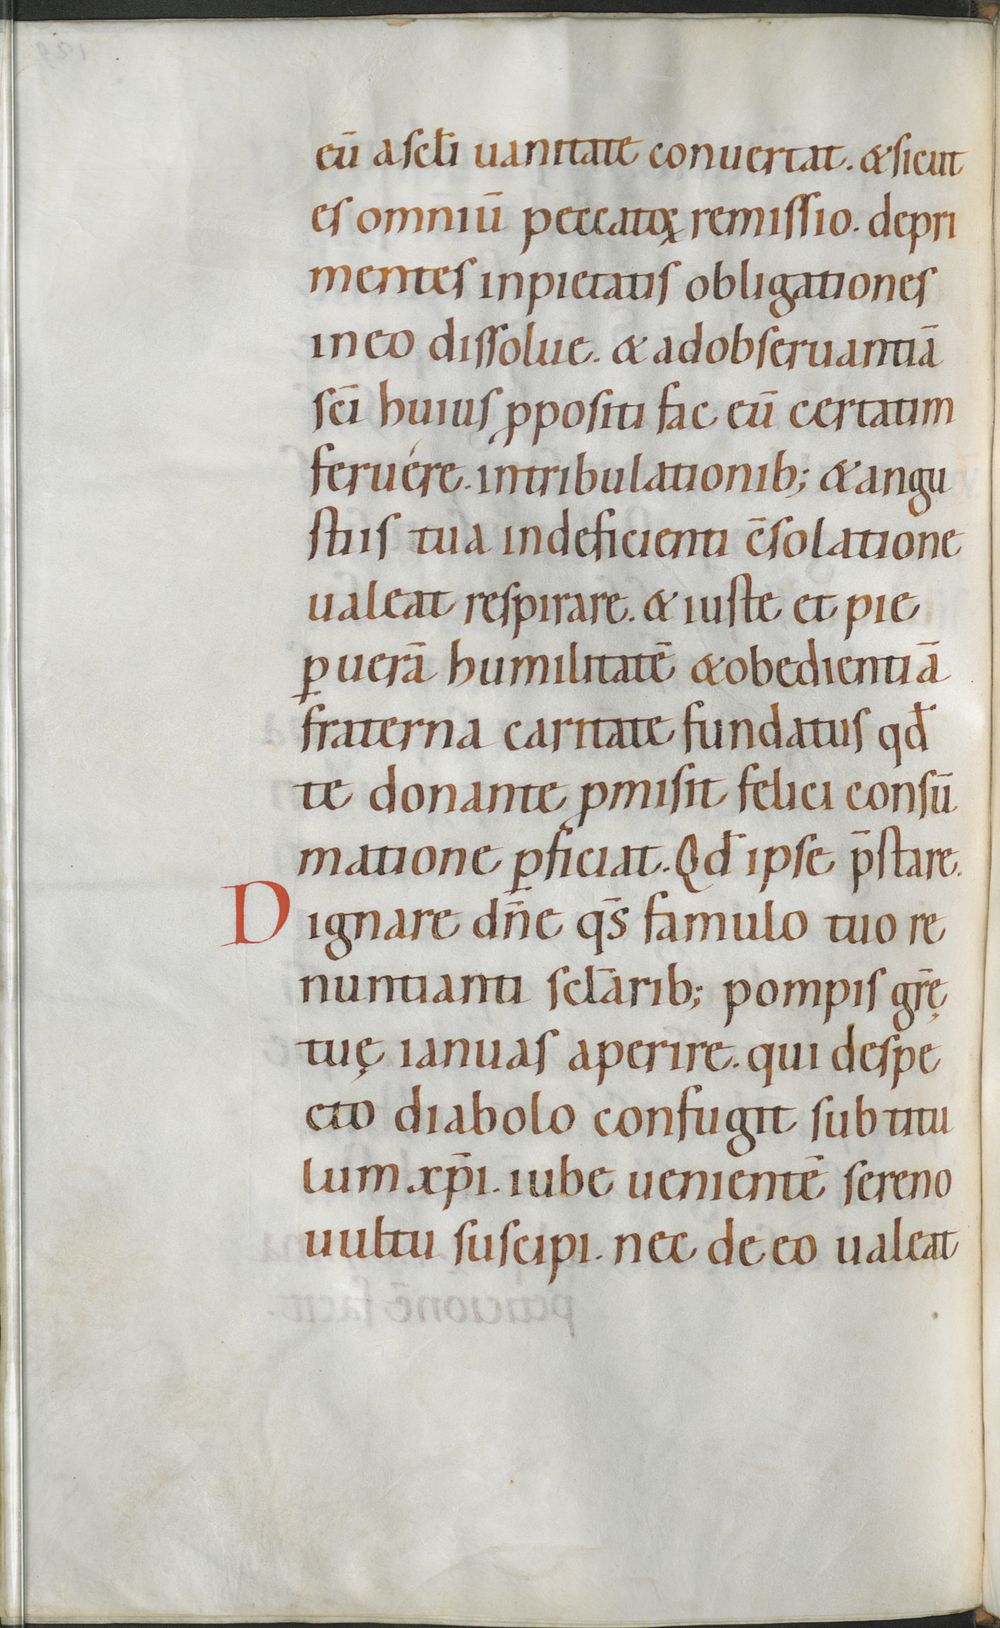 eū a scłi uanitate conuertat. & sicut
es omniū peccatoꝝ remissio. depri
mentes inpietatis obligationes
in eo dissolue. & ad obseruantiā
sc̄i huius ꝓpositi fac eū certatim
feruére. in tribulationib; & angu
stiis tua indeficienti c̄solatione
ualeat respirare. & iuste et pie
ꝑ uerā humilitatē & obedientiā
fraterna caritate fundatus qd̄
te donante ꝓmisit felici consū
matione ꝑficiat. Qd̄ ipse p̄stare.
Dignare dn̄e qs̄ famulo tuo re
nuntianti scłarib; pompis gr̄ę
tuę ianuas aperire. qui despe
cto diabolo confugit sub titu
lum xp̄i. iube uenientē sereno
uultu suscipi. nec de eo ualeat